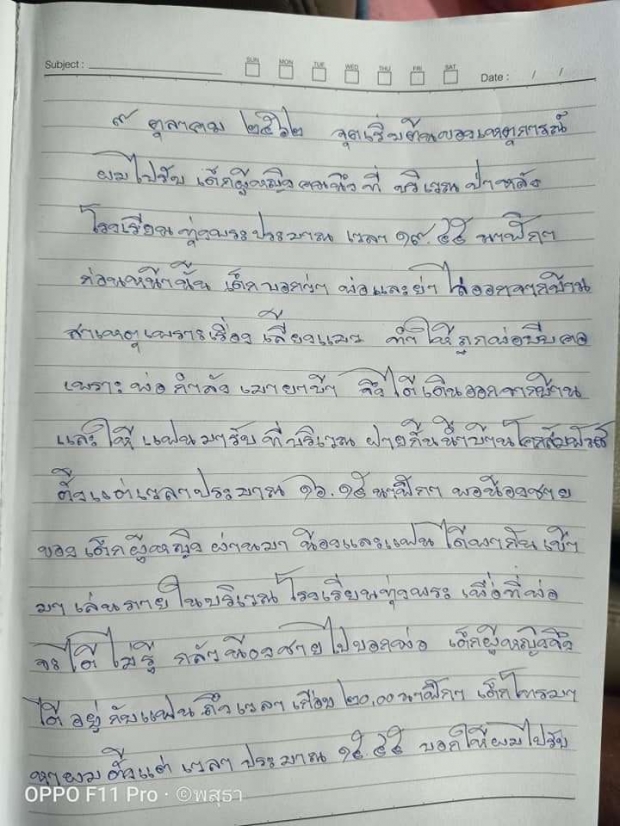 Subject :
SUN MON TUE WED THU FRI SAT
Date : / /
๙ ตุลาคม ๒๕๖๒ จุดเริ่มต้นของเหตุการณ์
ผมไปรับ เด็กผู้หญิงคนนึงที่ บริเวณ ป่าหลัง
โรงเรียน ทุ่งพระ ประมาณ เวลา ๑๙.๕๕ นาฬิกา
ก่อนหน้านั้น เด็กบอกว่า พ่อและย่า ไล่ออกจากบ้าน
สาเหตุเพราะเรื่อง เลี้ยงแมว ทำให้ถูกพ่อบีบคอ
เพราะ พ่อ กำลัง เมายาบ้า จึงได้เดินออกจากบ้าน
และให้ แฟนมารับ ที่บริเวณ ฝายกั้นน้ำบ้าน
ตั้งแต่เวลาประมาณ ๑๖.๑๕ นาฬิกา พอน้องชาย
ของ เด็กผู้หญิง ผ่านมา น้องและแฟน ได้พากัน เข้า
มา เล่นภายในบริเวณ โรงเรียนทุ่งพระ เพื่อที่พ่อ
จะได้ ไม่รู้ กลัวน้องชายไปบอกพ่อ เด็กผู้หญิงจึง
ได้ อยู่ กับแฟน ถึง เวลา เกือบ ๒๐.๐๐ นาฬิกา เด็กโทรมา
หาผม ตั้งแต่ เวลา ประมาณ ๑๙.๕๕ บอกให้ผมไปรับ
OPPO F11 Pro · ©พสุธา